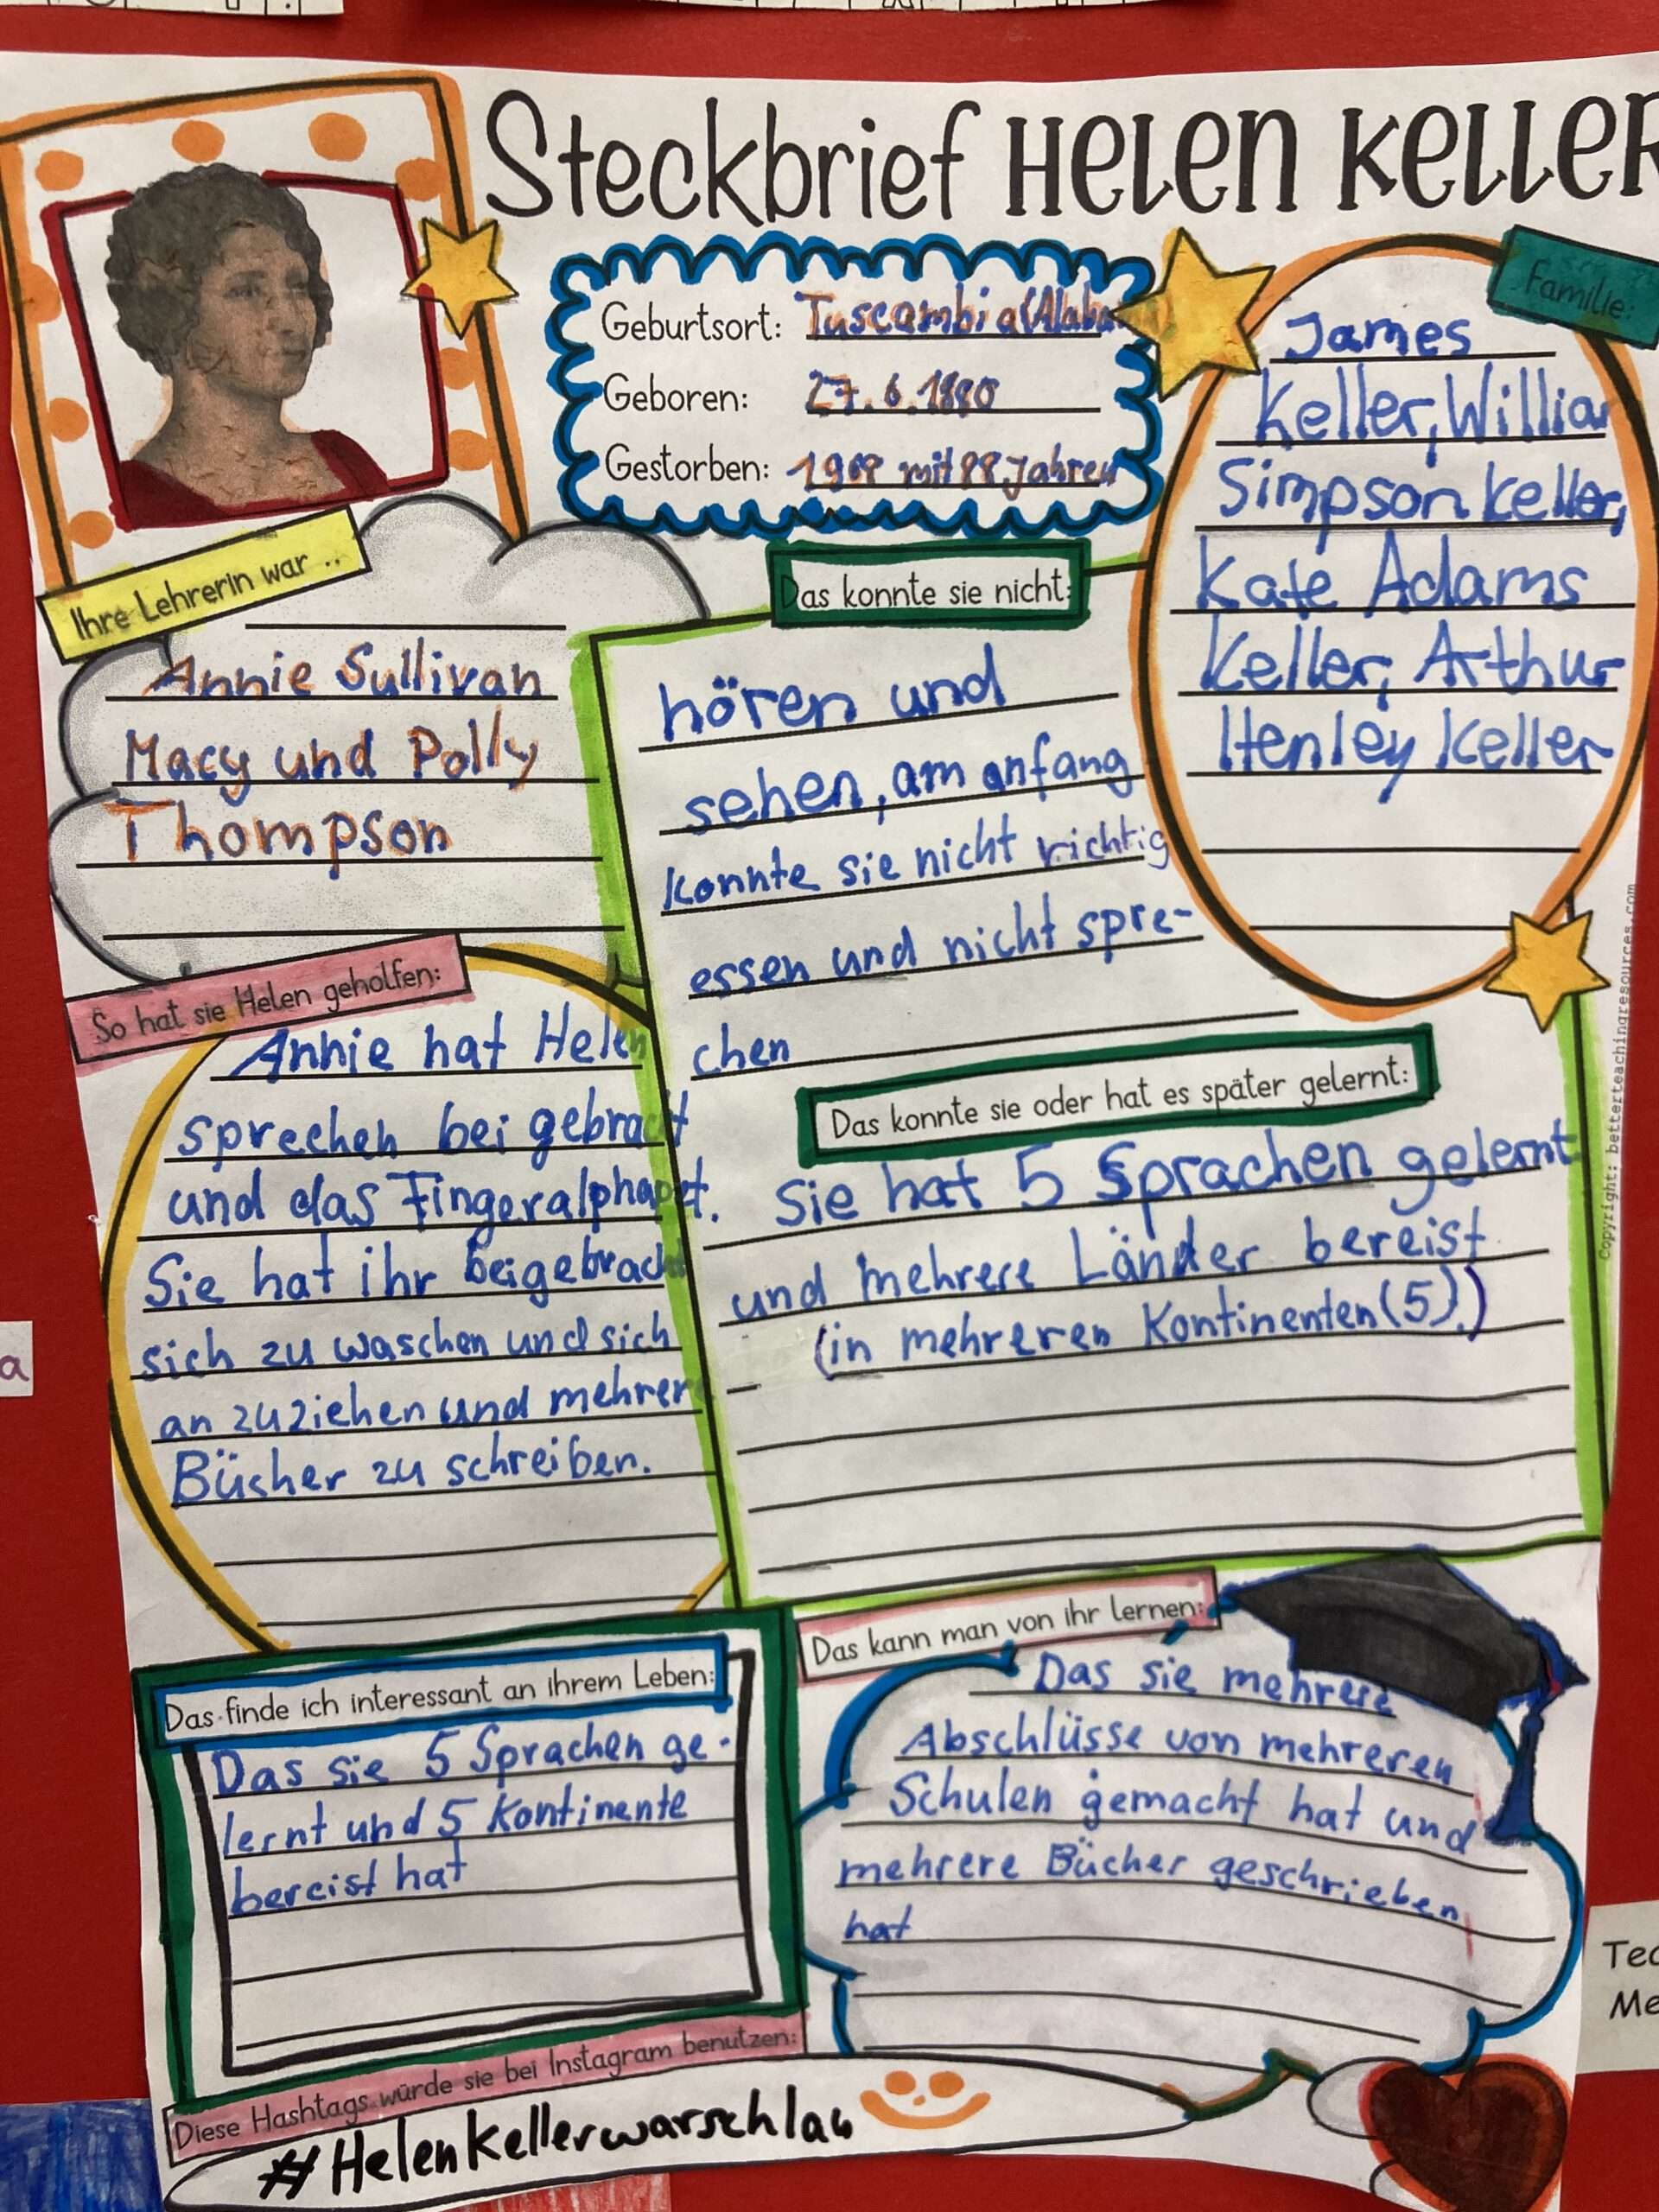 Steckbrief Helen Keller
Geburtsort: Tuscambia (Alaba
Geboren: 27.6.1880
Gestorben: 1968 mit 88 Jahren
Familie:
James
Keller, William
Simpson Keller,
Kate Adams
Keller, Arthur
Henley Keller
Ihre Lehrerin war ..
Annie Sullivan
Macy und Polly
Thompson
Das konnte sie nicht:
hören und
sehen, am anfang
konnte sie nicht richtig
essen und nicht spre-
chen
So hat sie Helen geholfen:
Annie hat Helen
sprechen bei gebracht
und das Fingeralphapet.
Sie hat ihr beigebracht
sich zu waschen und sich
an zuziehen und mehrere
Bücher zu schreiben.
Das konnte sie oder hat es später gelernt:
Sie hat 5 Sprachen gelernt
und mehrere Länder bereist
(in mehreren Kontinenten (5).)
Das finde ich interessant an ihrem Leben:
Das sie 5 Sprachen ge-
lernt und 5 Kontinente
bereist hat
Das kann man von ihr lernen:
Das sie mehrere
Abschlüsse von mehreren
Schulen gemacht hat und
mehrere Bücher geschrieben
hat
Diese Hashtags würde sie bei Instagram benutzen:
#HelenKellerwarschlau
Copyright: betterteachingresources.com
a
Tea
Me